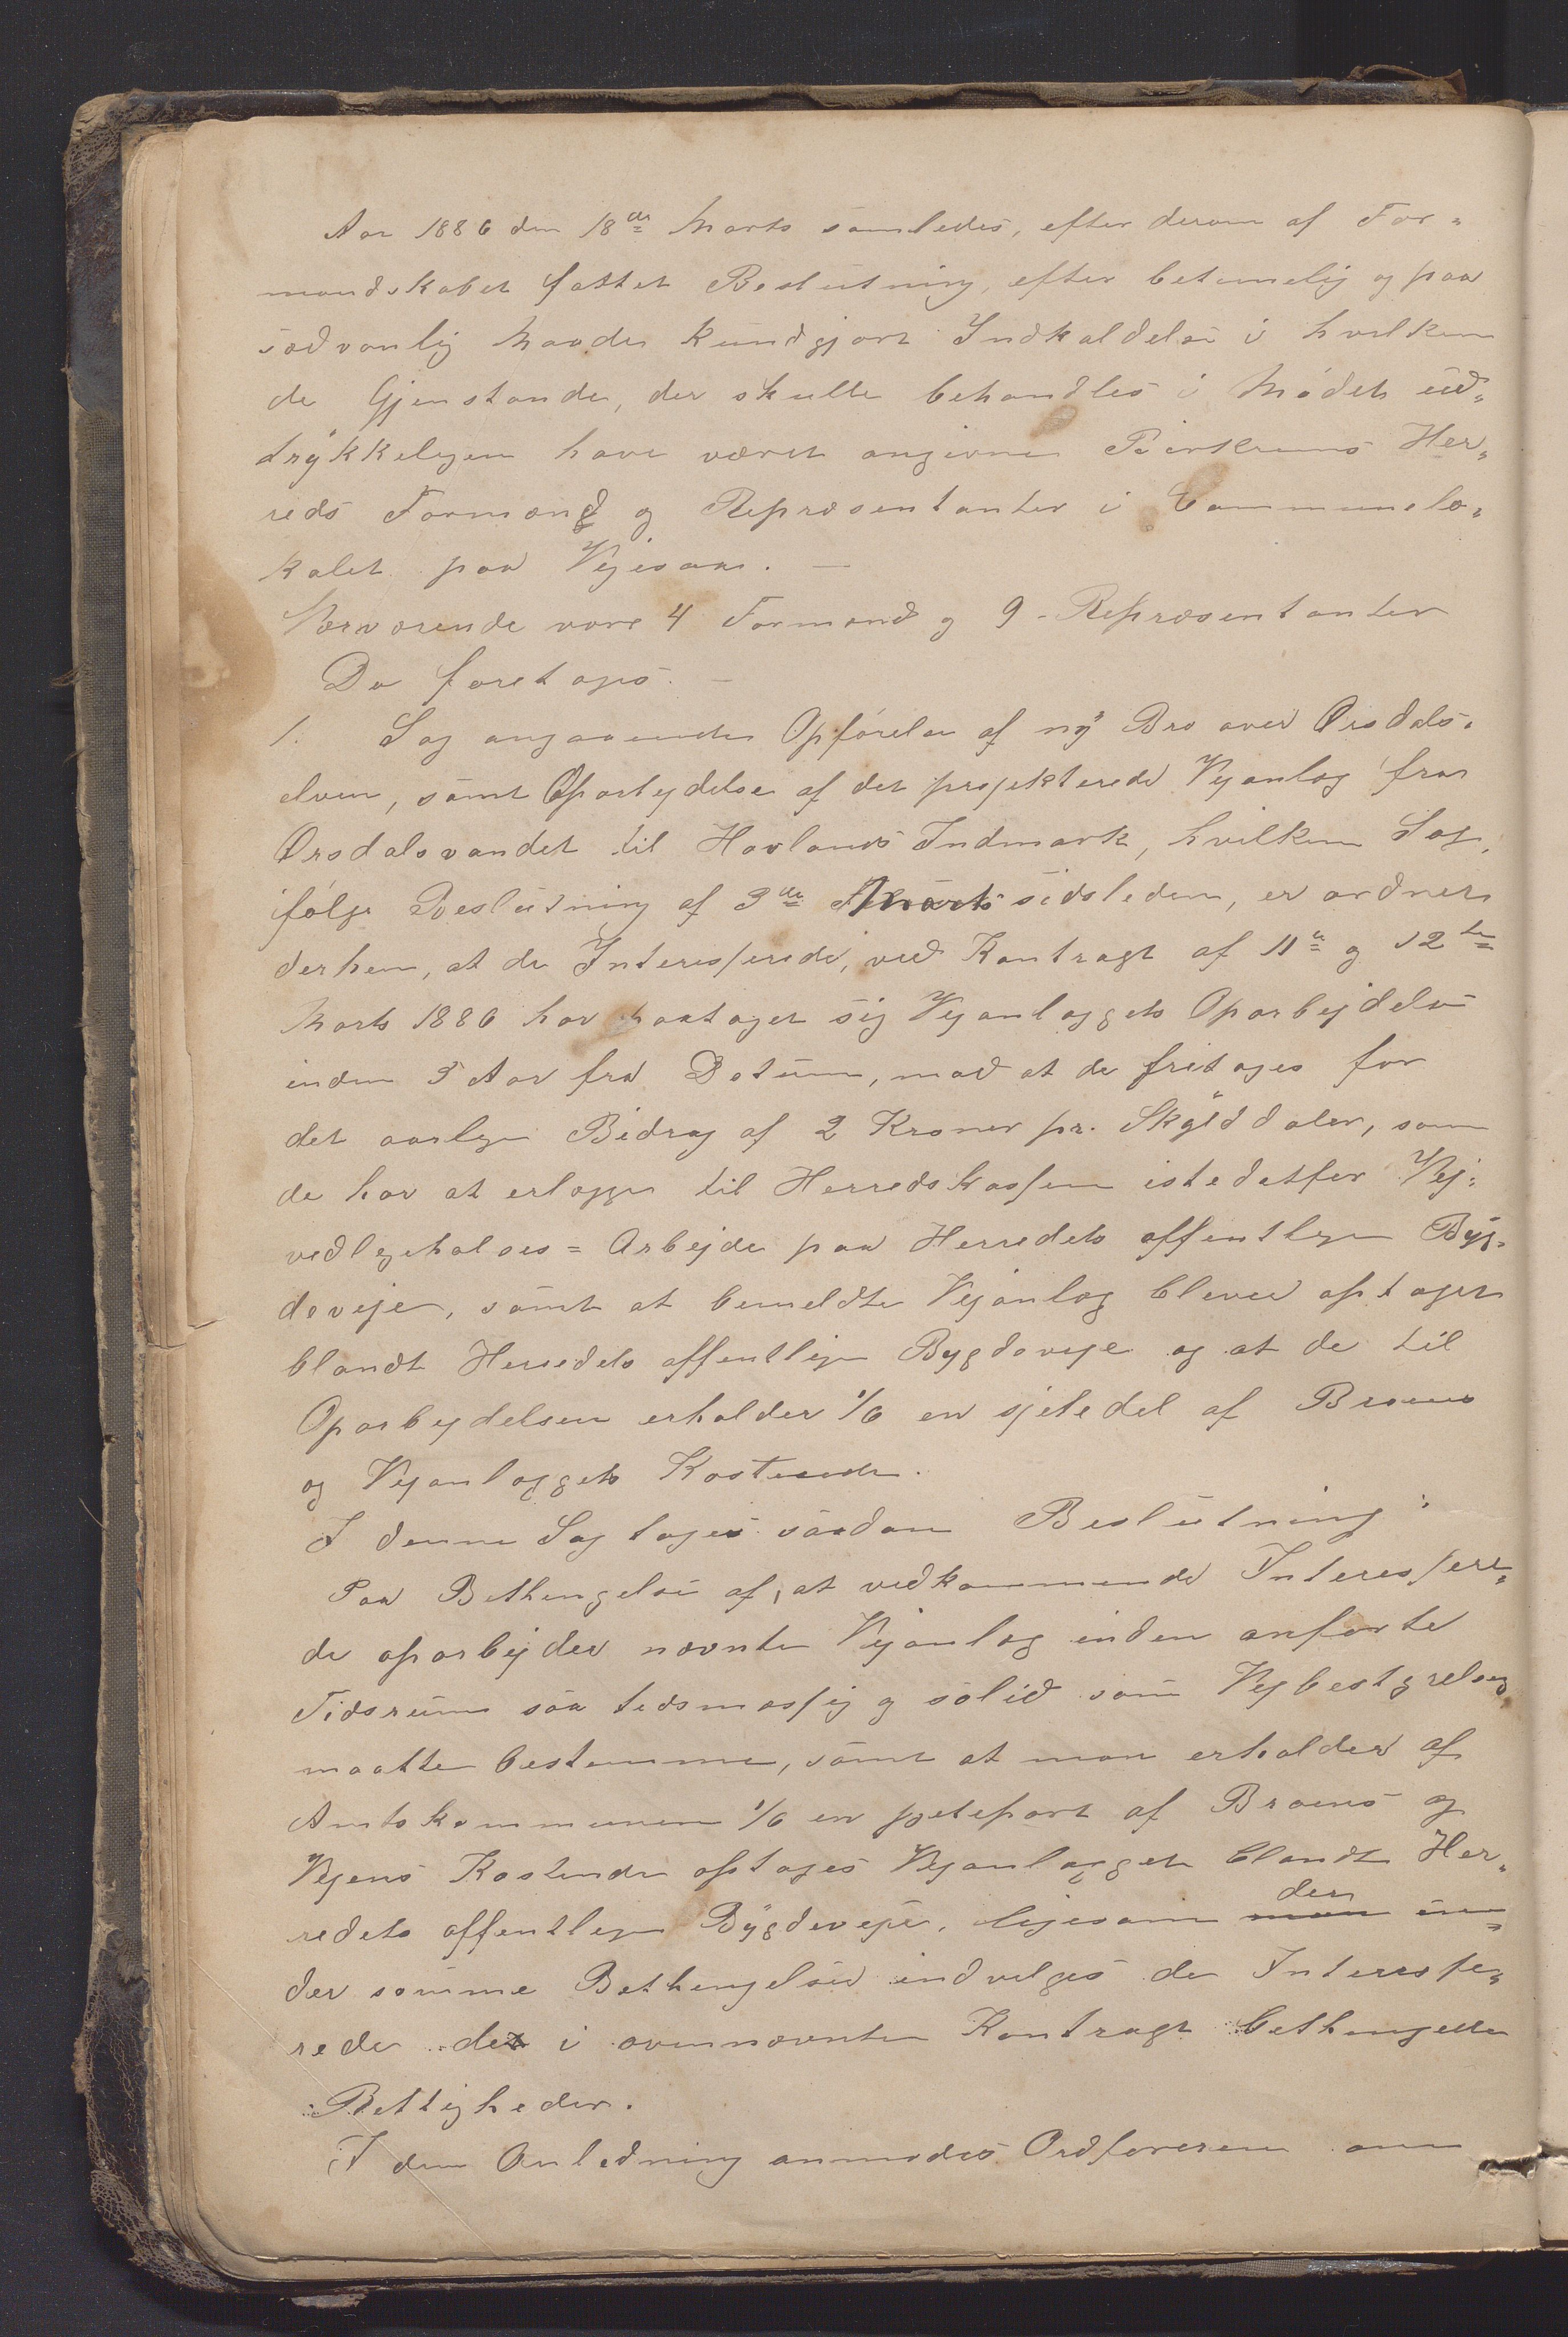 Aar 1886 den 18de Marts samledes, efter derom af For-
mandskabet fattet Beslutning, efter betimelig og paa
sædvanlig Maade kundgjort Indkaldelse i hvilken
de Gjenstande, der skulle behandles i Mødet ud-
trykkeligen have været angivne Birkrems Her-
reds Formænd og Repræsentanter i Communelo-
kalet paa Vigesaae. —
Nærværende vare 4 Formænd og 9 Repræsentanter
Da foretoges. —
1. Sag angaaende Opførelse af ny Bro over Ørsdals-
elven, samt Oparbejdelse af det projekterede Vejanlæg fra
Ørsdalsvandet til Hovlands Indmark, hvilken Sag,
ifølge Beslutning af 3de Marts sidstleden, er ordnet
derhen, at de Interesserede, ved Kontragt af 11te og 12te
Marts 1886 har paataget sig Vejanlæggets Oparbejdelse
inden 3 Aar fra Datum, mod at de fritages for
det aarlige Bidrag af 2 Kroner pr. Skylddaler, som
de har at erlægge til Herredskassen istedetfor Vej-
vedligeholdes-Arbejde paa Herredets offentlige Byg-
deveje, samt at bemeldte Vejanlæg bliver optaget
blandt Herredets offentlige Bygdeveje og at de til
Oparbejdelsen erholder 1/6 en sjetedel af Broens
og Vejanlæggets Kostende.
I denne Sag toges saadan Beslutning:
Paa Bethingelse af, at vedkommende Interesere-
de oparbejder nævnte Vejanlæg inden anførte
Tidsrum saa tidsmæssig og solid som Vejbestyrelsen
maatte bestemme, samt at man erholder af
Amtskommunen 1/6 en sjettepart af Broens og
Vejens Kostende optages Vejanlægget blandt Her-
redets offentlige Bygdeveje, ligesom der un-
der samme Bethingelse indvilges de Interesse-
rede de i ovennævnte Kontragt bethingede
Rettigheder.
I den Anledning anmodes Ordføreren om